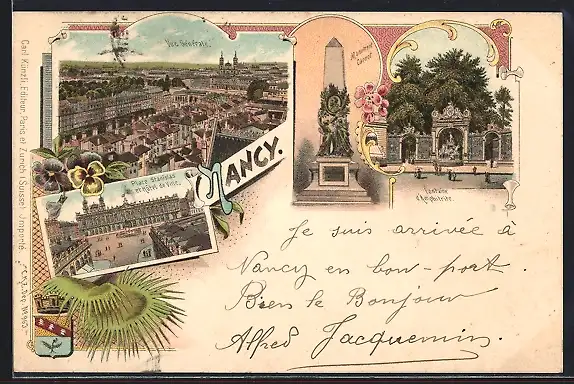 Vue Générale.
Monument Carnot
Fontaine
d'Amphitrite.
NANCY.
Place Stanislas
et Hôtel de Ville.
Je suis arrivée à
Nancy en bon-port.
Bien le Bonjour
Alfred Jacquemin.
Carl Künzli, Editeur, Paris et Zurich (Suisse) Importé